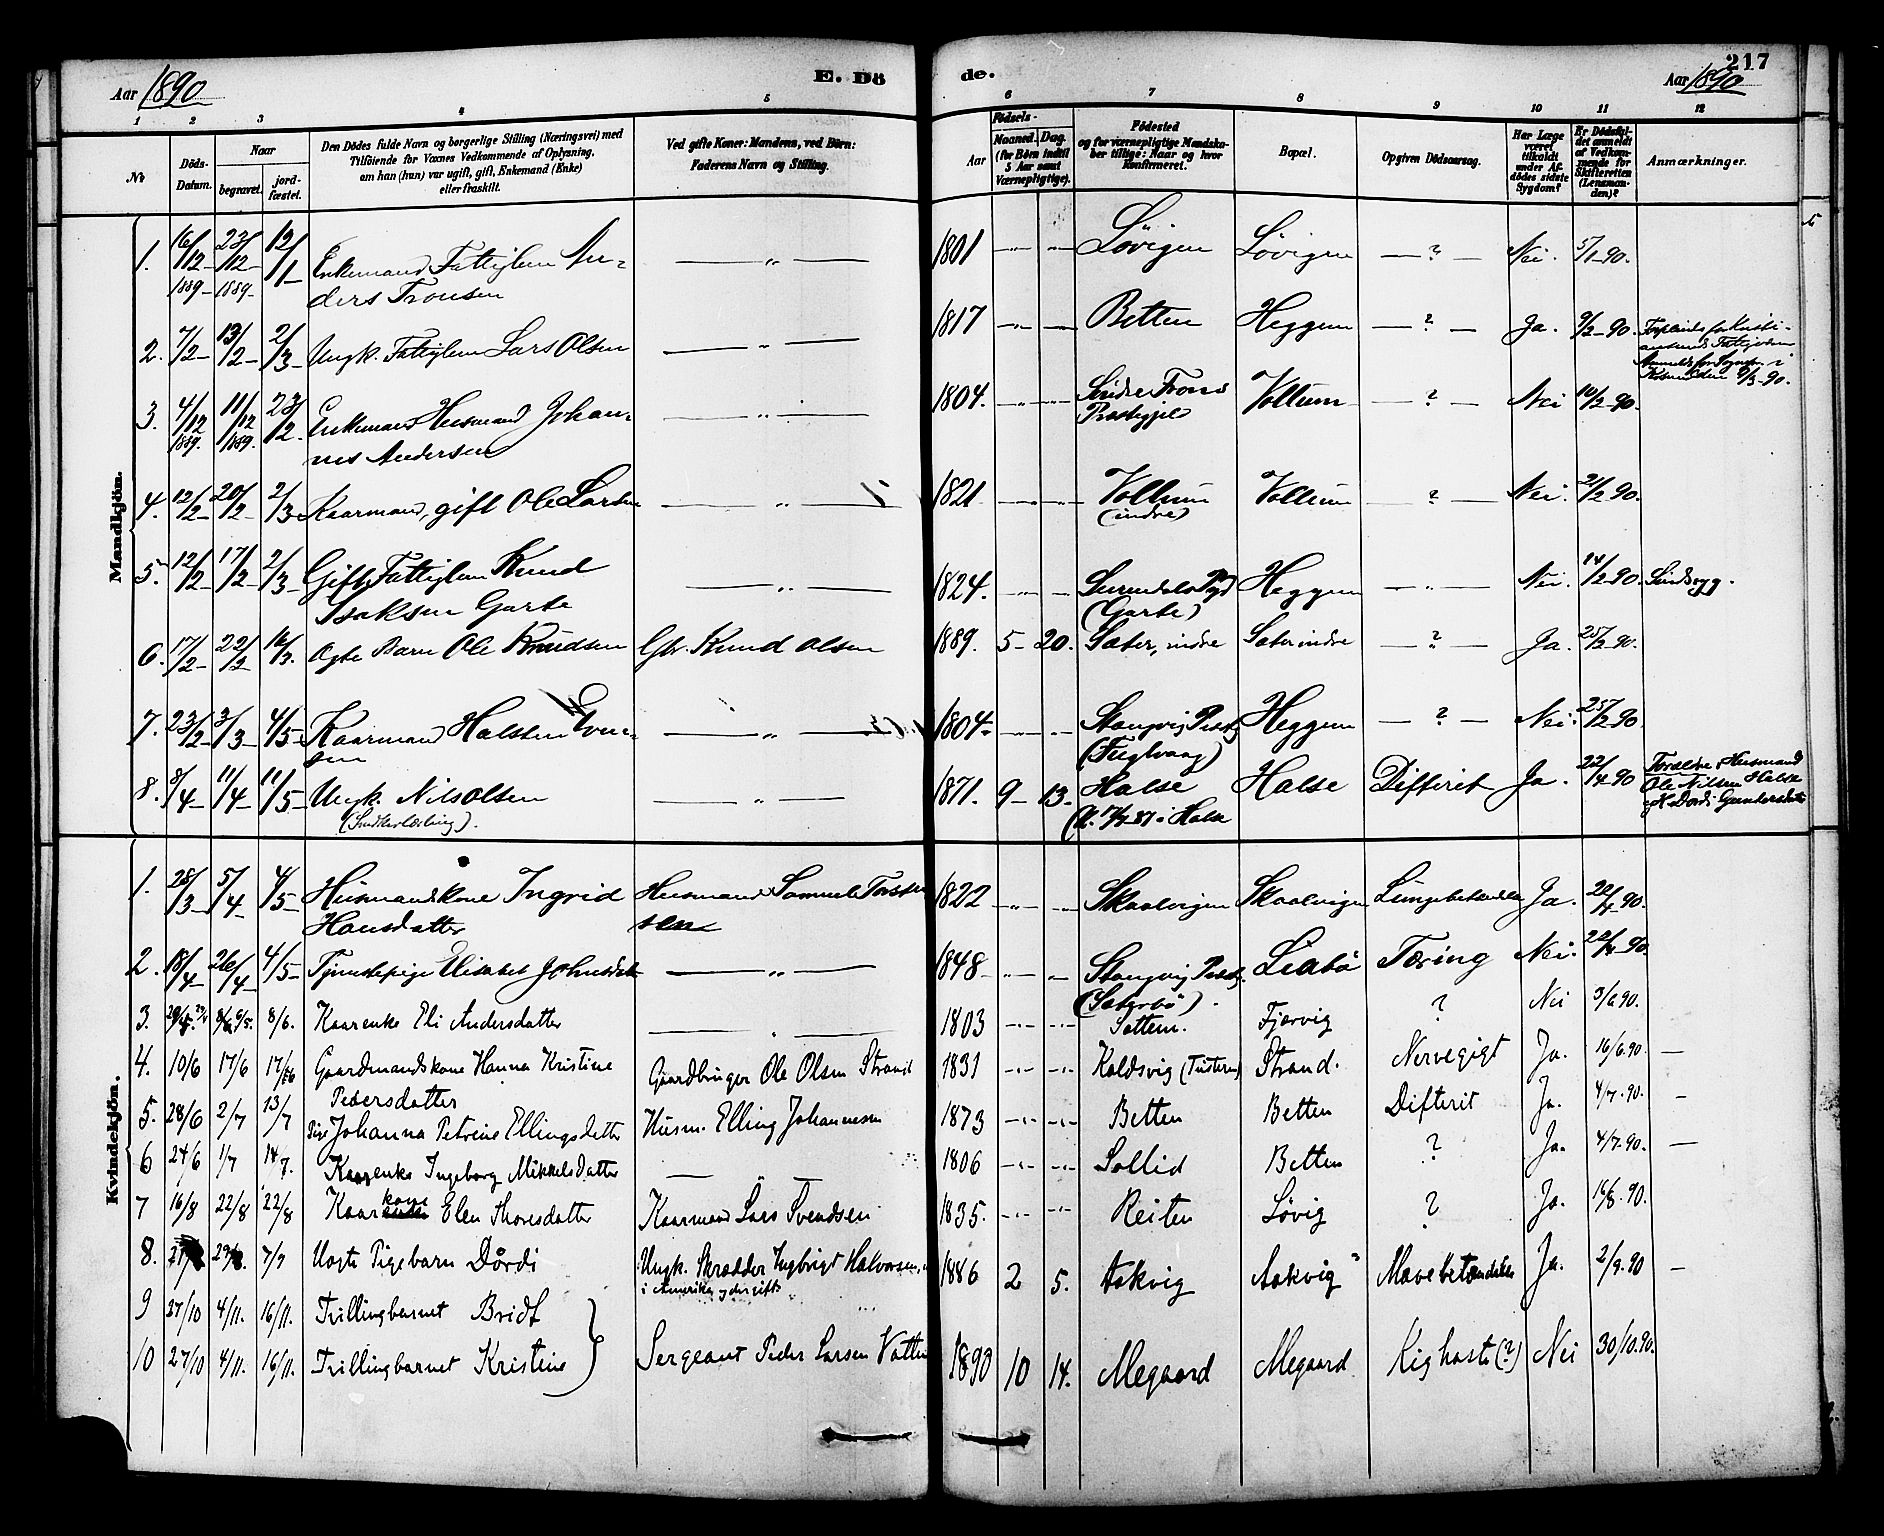 Aar 1890
E. Dö
de.
217
Aar 1890
1 2 3 4 5 6 7 8 9 10 11 12
No
Döds-Datum.
Naar
begravet.
jord-fæstet.
Den Dödes fulde Navn og borgerlige Stilling (Næringsvei) med
Tilföiende for Voxnes Vedkommende af Oplysning,
om han (hun) var ugift, gift, Enkemand (Enke)
eller fraskilt.
Ved gifte Koner: Mandens, ved Börn:
Faderens Navn og Stilling.
Födsels-
Aar
Maaned. Dag.
(for Börn indtil
5 Aar samt
Værnepligtige).
Födested
og for værnepligtige Mandska-
ber tillige: Naar og hvor
Konfirmeret.
Bopæl.
Opgiven Dödsaarsag.
Har Læge
været
tilkaldt
under Af-
dödes sidste
Sygdom?
Er Dödsfal-
det anmeldt
af Vedkom-
mende for
Skifteretten
(Lensman-
den)?
Anmærkninger.
Mandkjön.
1. 16/12 1889 23/12 1889 12/1 Enkemand Fattiglem An-
ders Tronsen — „ — 1801 Løvigen Løvigen — ? — Nei. 5/1-90.
2. 7/2 13/2 2/3 Ungk. Fattiglem Lars Olsen — „ — 1817 Betten Heggem — ? — Ja. 9/2-90.
3. 4/12 1889. 11/12 1889. 23/2 Enkemand Husmand Johan-
nes Andersen — „ — 1804. Vollum — ? — Nei 10/2-90.
4. 12/2 20/2 2/3 Kaarmand, gift Ole Larsen — „ — 1821 Vollum
(indre) Vollum — ? — Nei. 21/2-90.
5. 12/2 17/2 2/3 Gift Fattiglem Knud
Isaksen Garte — „ — 1824. Surendals Pgd
(Garte) Heggem — „ — Nei. 14/2-90. Sindssyg.
6. 17/2 22/2 16/3. Ægte Barn Ole Knudsen Gbr. Knud Olsen 1889. 5 20. Sæter, indre Sæter indre — ? — Ja. 25/2-90.
7. 23/2 3/3 4/5 Kaarmand Halsten Even-
sen — „ — 1804 Stangvig Prstg
(Fuglvaag) Heggem — ? — Nei. 25/2-90
8. 8/4 11/4 11/5 Ungk. Nils Olsen
(Snedkerlærling). — „ — 1871. 9 13. Halse
Halse Difterit Ja. 22/4-90 Forældre: Husmand
Ole Nilsen Halse
og K. Dordi Gundersdtr
Kvindekjön.
1. 28/3 5/4 4/5 Husmandskone Ingrid
Hansdatter Husmand Samuel Torsten-
sen 1822 Skaalvigen Skaalvigen Lungebetændelse Ja. 20/4-90.
2. 18/4 26/4 4/5 Tjenestepige Elisabet Johnsdatter — „ — 1848 Stangvig Prstg.
(Sæterbø). Liabø Tæring Nei. 20/4-90.
3. 8/6. Kaarenke Eli Andersdatter — „ — 1803 Settem. Fjærvig ? Nei 3/6.90.
4. 10/6 17/6 17/6 Gaardmandskone Hanna Kristine
Pedersdatter Gaardbruger Ole Olsen Strand 1831 Koldsvig (Tusteren) Strand. Nervegigt Ja. 16/6.90. —
5. 28/6 2/7 13/7 Pige Johanna Petrine Ellingsdatter Husm. Elling Johannesen 1873 Betten Betten Difterit Ja. 4/7.90. —
6 24/6 1/7 14/7. Kaarenke Ingeborg Mikkelsdatter — 1806 Sollid Betten ? Ja. 4/7.90. —
7 16/8 22/8 22/8 Kaarkone Elen Thoresdatter Kaarmand Lars Svendsen 1835. Reiten Løvig ? Ja. 16/8.90.
8. 7/9 Uægte Pigebarn Dørdi Ungk. Skrædder Ingbrigt Halvorsen,
i Amerika, der gift 1886 2 5. Aakvig Aakvig Mavebetændelse Ja. 2/9.90 —
9 27/10 4/11. 16/11. Tvillingbarnet Bridt
10 27/10 4/11. 16/11. Tvillingbarnet Kristine } Sergeant Peder Larsen Vatten 1890 10 14. Megaard Megaard Kighoste (?) Nei 30/10.90.